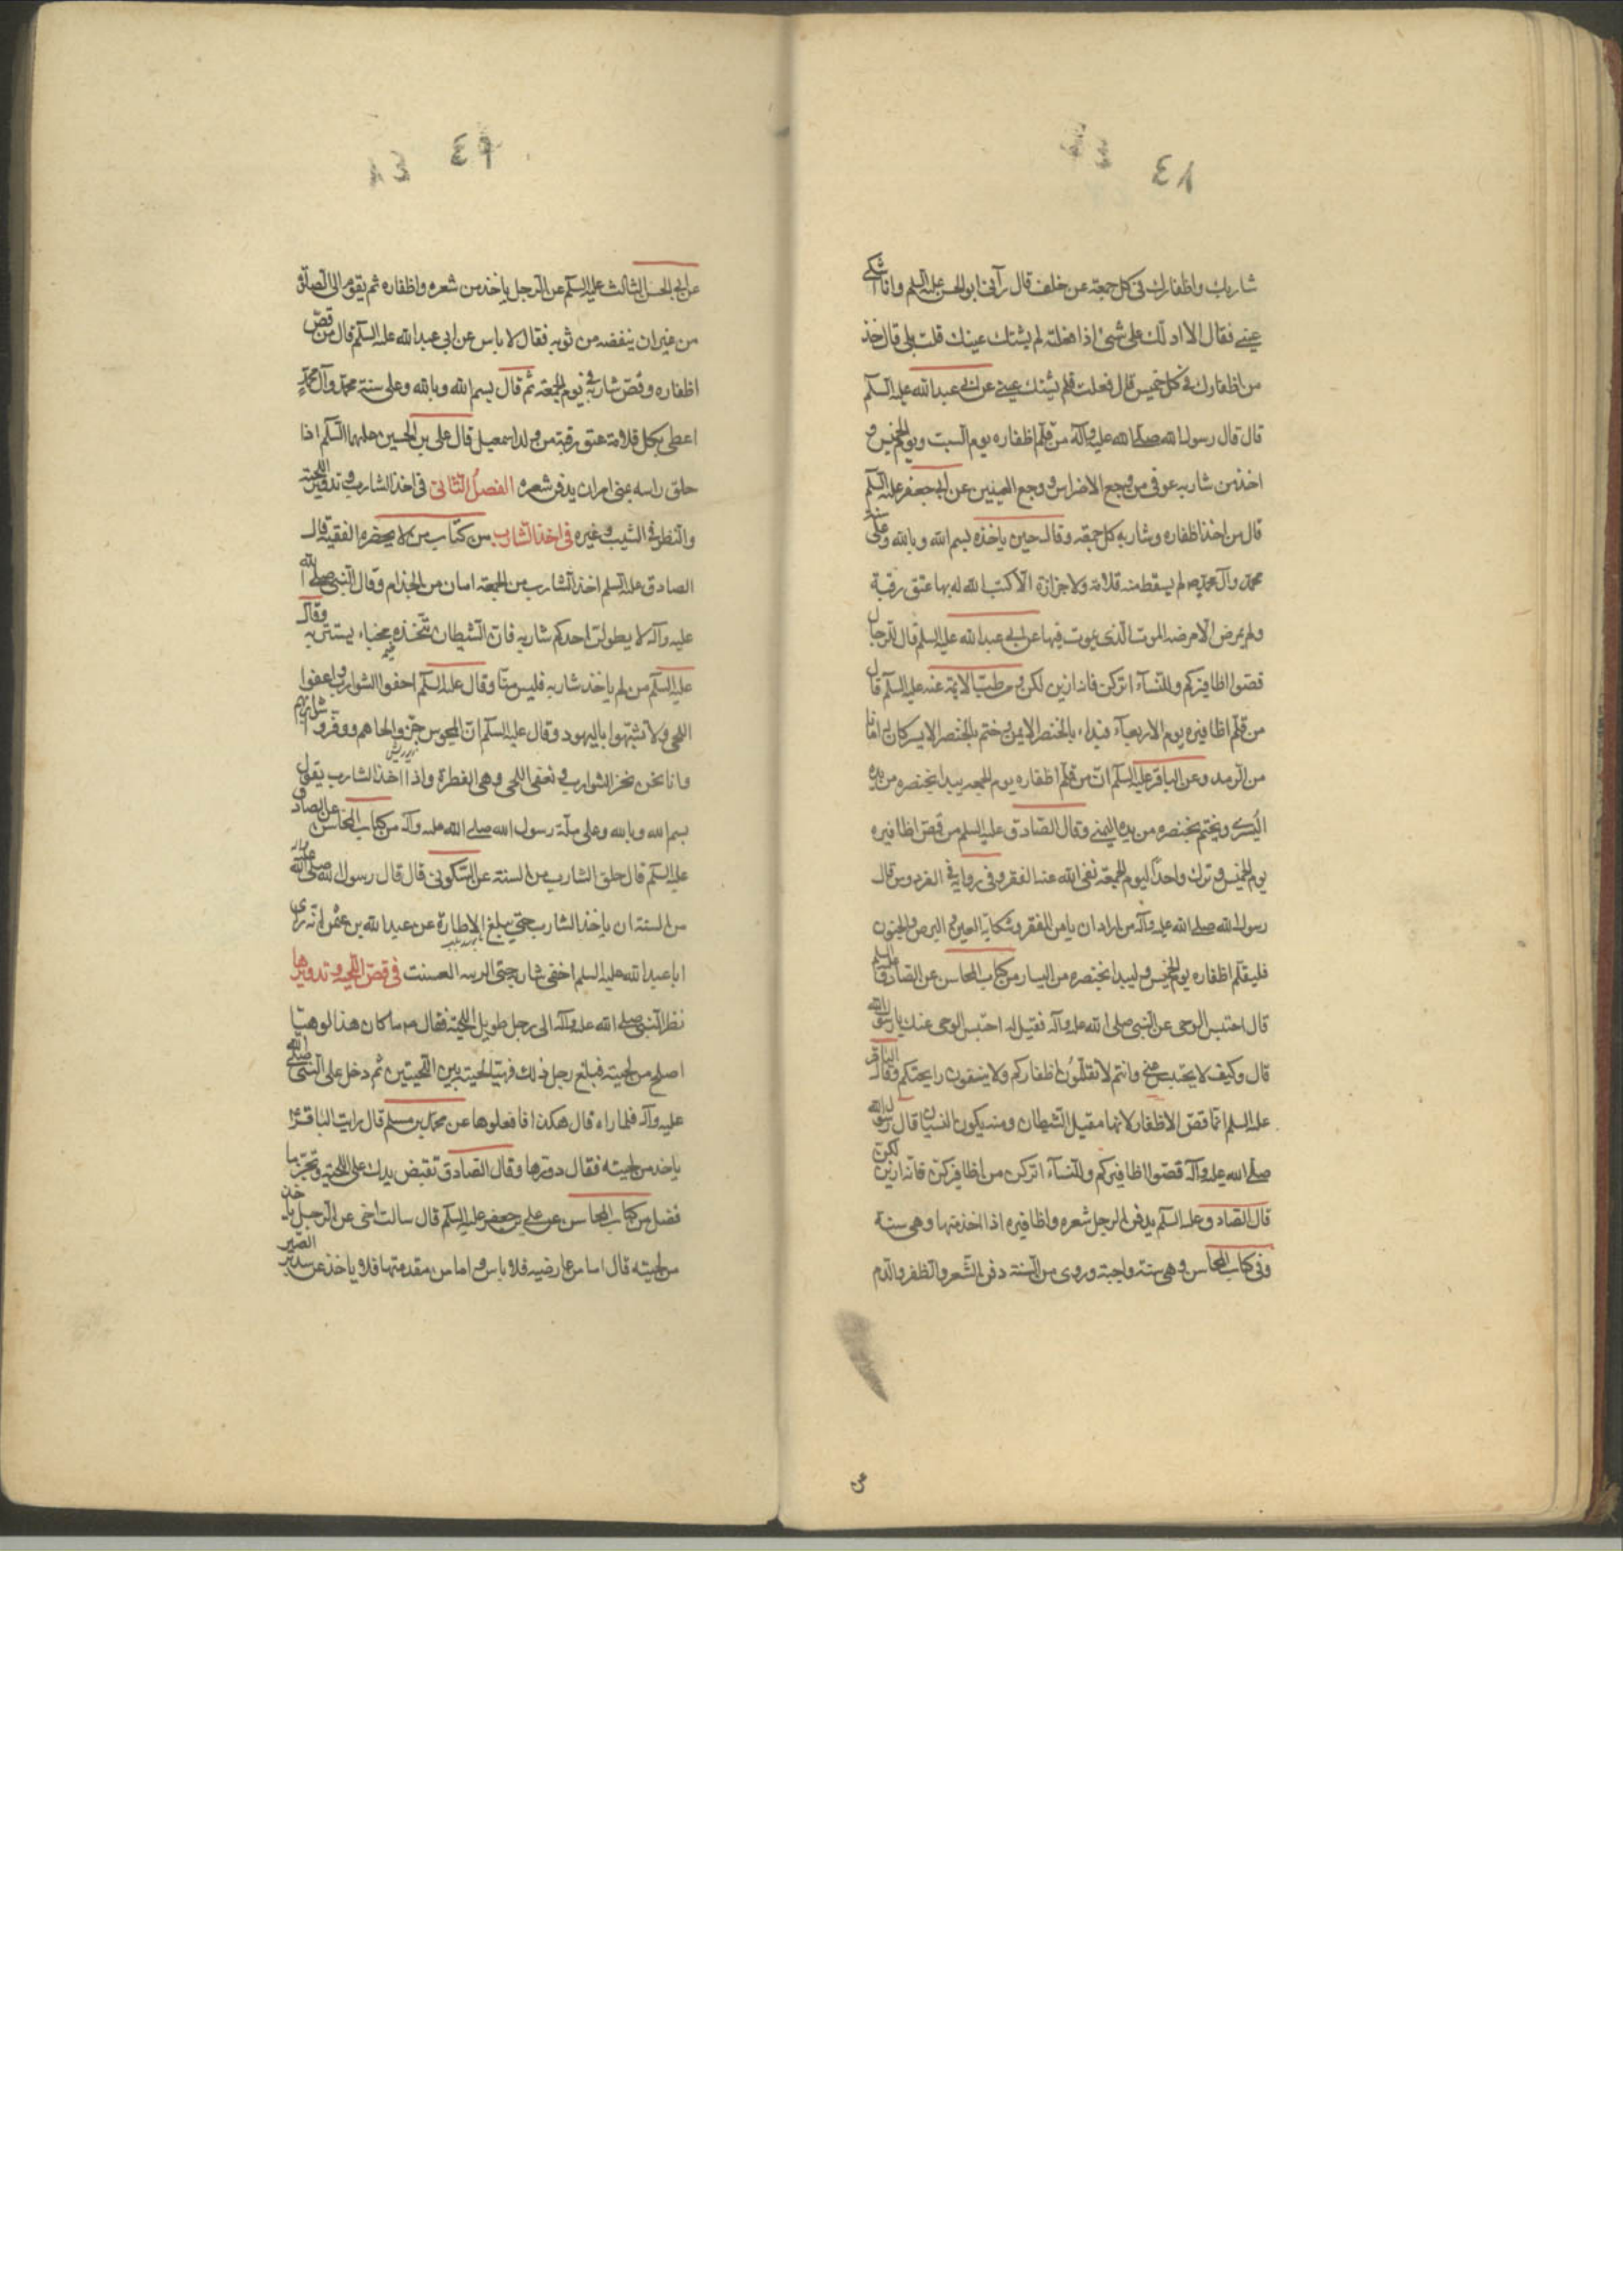 ٤٨
شاربك واظفارك في كل جمعة عن خلف قال رآنى ابو الحسن عليه السلم وانا اشتكى
عينى فقال الا ادلك على شئ اذا فعلته لم يشتك عينك قلت بلى قال خذ
من اظفارك في كل خميس قال ففعلت فلم يشتك عينى عن ابى عبد الله عليه السلم
قال قال رسول الله صلى الله عليه وآله من قلم اظفاره يوم السبت ويوم الخميس و
اخذ من شاربه عوفى من وجع الاضراس ووجع العينين عن ابى جعفر عليه السلم
قال من اخذ اظفاره وشاربه كل جمعة وقال حين ياخذه بسم الله وبالله وعلى سنة
محمد وآل محمد لم يسقط منه قلامة ولا جزازة الا كتب الله له بها عتق رقبة
ولم يمرض الا مرضه الموت الذى يموت فيها عن ابى عبد الله عليه السلم قال للرجال
قصوا اظافيركم وللنساء اتركن فانه ازين لكن و طب الائمة عنه عليه السلم قال
من قلم اظافيره يوم الاربعاء فبداء بالخنصر الايمن وختم بالخنصر الايسر كان له امانا
من الرمد وعن الباقر عليه السلم ان من قلم اظفاره يوم الجمعه يبدا بخنصره من يده
اليسرى ويختم بخنصره من يده اليمنى وقال الصادق عليه السلم من قص اظافيره
يوم الخميس وترك واحداً ليوم الجمعة نفى الله عنه الفقر وفى رواية في الفردوس قال
رسول الله صلى الله عليه وآله من اراد ان يامن الفقر وشكاية العين والبرص والجنون
فليقلم اظفاره يوم الخميس وليبدا بخنصره من اليسار من كتاب المحاسن عن الصادق عليه السلم
قال احتبس الوحى عن النبى صلى الله عليه وآله فقيل له احتبس الوحى عنك يا رسول الله
قال وكيف لا يحتبس عنى وانتم لا تقلّمون اظفاركم ولا ينقون رايحتكم وقال الباقر
عليه السلم انما قص الاظفار لانها مقيل الشيطان ومنه يكون النسيان قال رسول الله
صلى الله عليه وآله قصوا اظافيركم وللنساء اتركن من اظافيركن فانه ازين لكن
قال الصادق عليه السلم يدفن الرجل شعره واظافيره اذا اخذ منها وهى سنة
وفى كتاب المحاسن وهى سنة واجبة وروى من السنة دفن الشعر والظفر والدم
٤٩
عن ابى الحسن الثالث عليه السلم عن الرجل ياخذ من شعره واظفاره ثم يقوم الى الصلوة
من غير ان ينفضه من ثوبه فقال لا باس عن ابى عبد الله عليه السلم قال من قص
اظفاره وقص شاربه في يوم الجمعة ثم قال بسم الله وبالله وعلى سنة محمد وآل محمد
اعطى بكل قلامة عتق رقبة من ولد اسمعيل قال على بن الحسين عليهما السلم اذا
حلق راسه بمنى امر ان يدفن شعره الفصل الثانى فى اخذ الشارب وتدوير اللحية
والنظر في الشيب وغيره فى اخذ الشارب من كتاب من لا يحضره الفقيه قال
الصادق عليه السلم اخذ الشارب من الجمعة امان من الجذام وقال النبى صلى الله
عليه وآله لا يطولن احدكم شاربه فان الشيطان يتخذه مخباء يستتر به وقال
عليه السلم من لم ياخذ شاربه فليس منّا وقال عليه السلم احفوا الشوارب واعفوا
اللحى ولا تشبّهوا باليهود وقال عليه السلم ان المجوس جزوا لحاهم ووفروا شواربهم
وانا نحن نجز الشوارب ونعفى اللحى وهى الفطرة واذا اخذ الشارب يقول
بسم الله وبالله وعلى ملّة رسول الله صلى الله عليه وآله من كتاب المحاسن عن الصادق
عليه السلم قال حلق الشارب من السنة عن السكونى قال قال رسول الله صلى الله عليه وآله
من السنة ان ياخذ الشارب حتى يبلغ الاطارة عن عبد الله بن عثمن انه راى
ابا عبد الله عليه السلم احفى شاربه حتى العسنت فى قص اللحية وتدويرها
نظر النبى صلى الله عليه وآله الى رجل طويل اللحية فقال ما كان هذا لو هيّا
اصلح من لحيته فبلغ رجل ذلك فهيّا لحيته بين اللحيتين ثم دخل على النبى صلى الله
عليه وآله فلما راه قال هكذا فافعلوها عن محمد بن مسلم قال رايت الباقر
ياخذ من لحيته فقال دوّرها وقال الصادق تقبض بيدك على اللحية وتجز ما
فضل من كتاب المحاسن عن على بن جعفر عليه السلم قال سالت اخى عن الرجل ياخذ
من لحيته قال اما من عارضيه فلا باس واما من مقدمتها فلا ياخذ عن سدير الصير